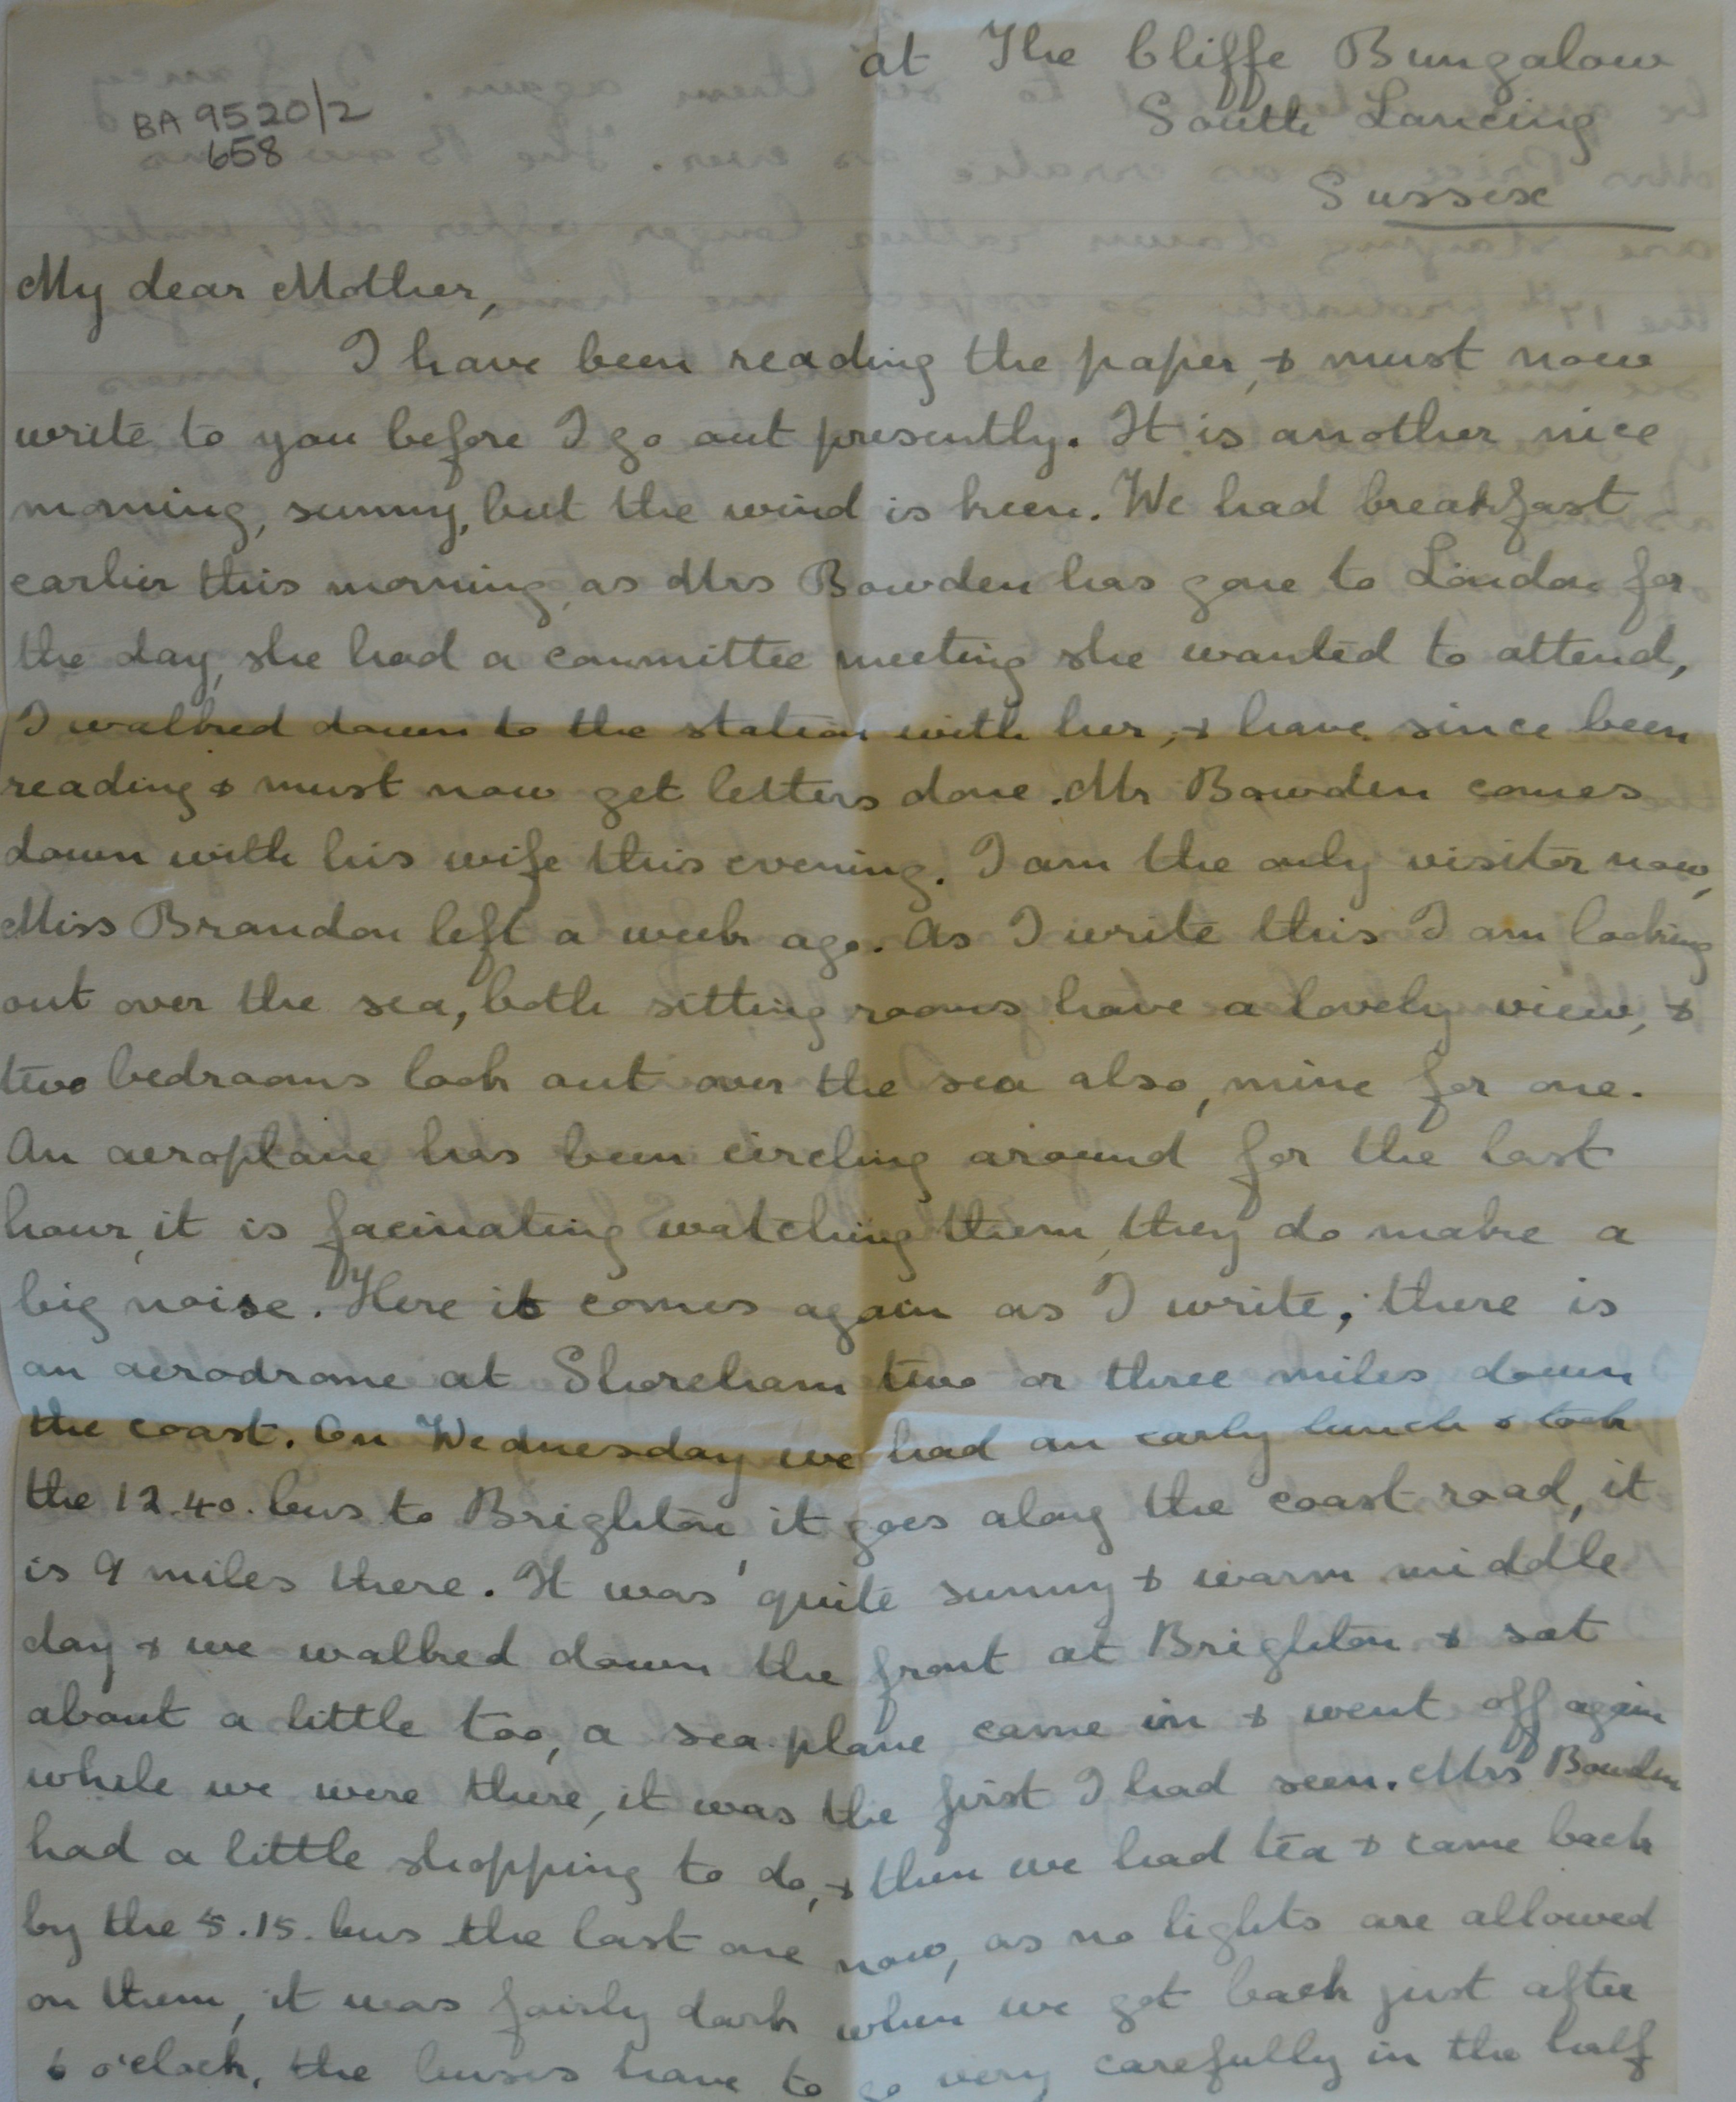 at The Cliffe Bungalow
South Lancing
Sussex
BA 9520/2
658
My dear Mother,
I have been reading the paper, & must now
write to you before I go out presently. It is another nice
morning, sunny, but the wind is keen. We had breakfast
earlier this morning, as Mrs Bowden has gone to London for
the day, she had a committee meeting she wanted to attend,
I walked down to the station with her, & have since been
reading & must now get letters done. Mr Bowden comes
down with his wife this evening. I am the only visitor now,
Miss Brandon left a week ago. As I write this I am looking
out over the sea, both sitting rooms have a lovely view, &
two bedrooms look out over the sea also, mine for one.
An aeroplane has been circling around for the last
hour, it is facinating watching them, they do make a
big noise. Here it comes again as I write, there is
an aerodrome at Shoreham two or three miles down
the coast. On Wednesday we had an early lunch & took
the 12.40. bus to Brighton, it goes along the coast road, it
is 9 miles there. It was quite sunny & warm middle
day & we walked down the front at Brighton & sat
about a little too, a sea plane came in & went off again
while we were there, it was the first I had seen. Mrs Bowden
had a little shopping to do, & then we had tea & came back
by the 5.15. bus the last one now, as no lights are allowed
on them, it was fairly dark when we got back just after
6 o'clock, the buses have to go very carefully in the half